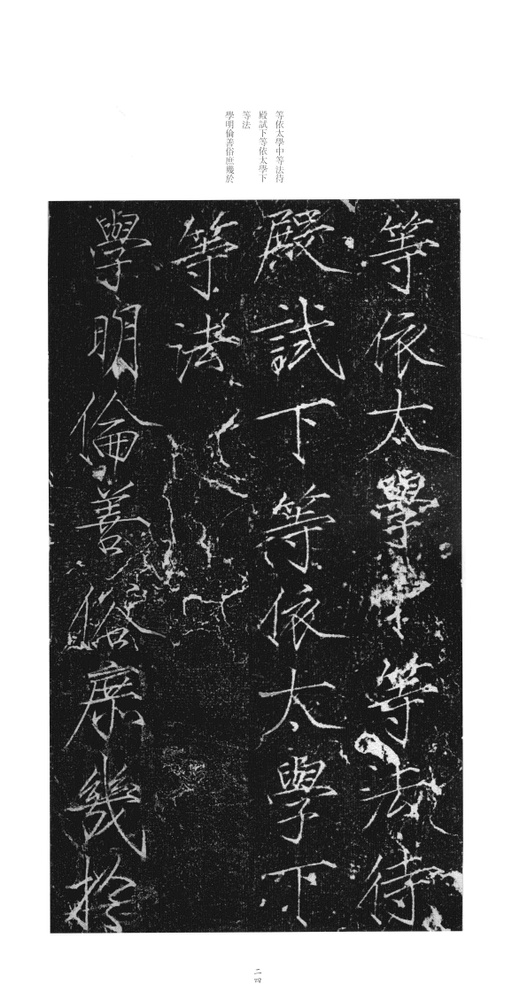 等依太學中等法待
殿試下等依太學下
等法
學明倫善俗庶幾於
等依太學中等法待
殿試下等依太學下
等法
學明倫善俗庶幾於
二四